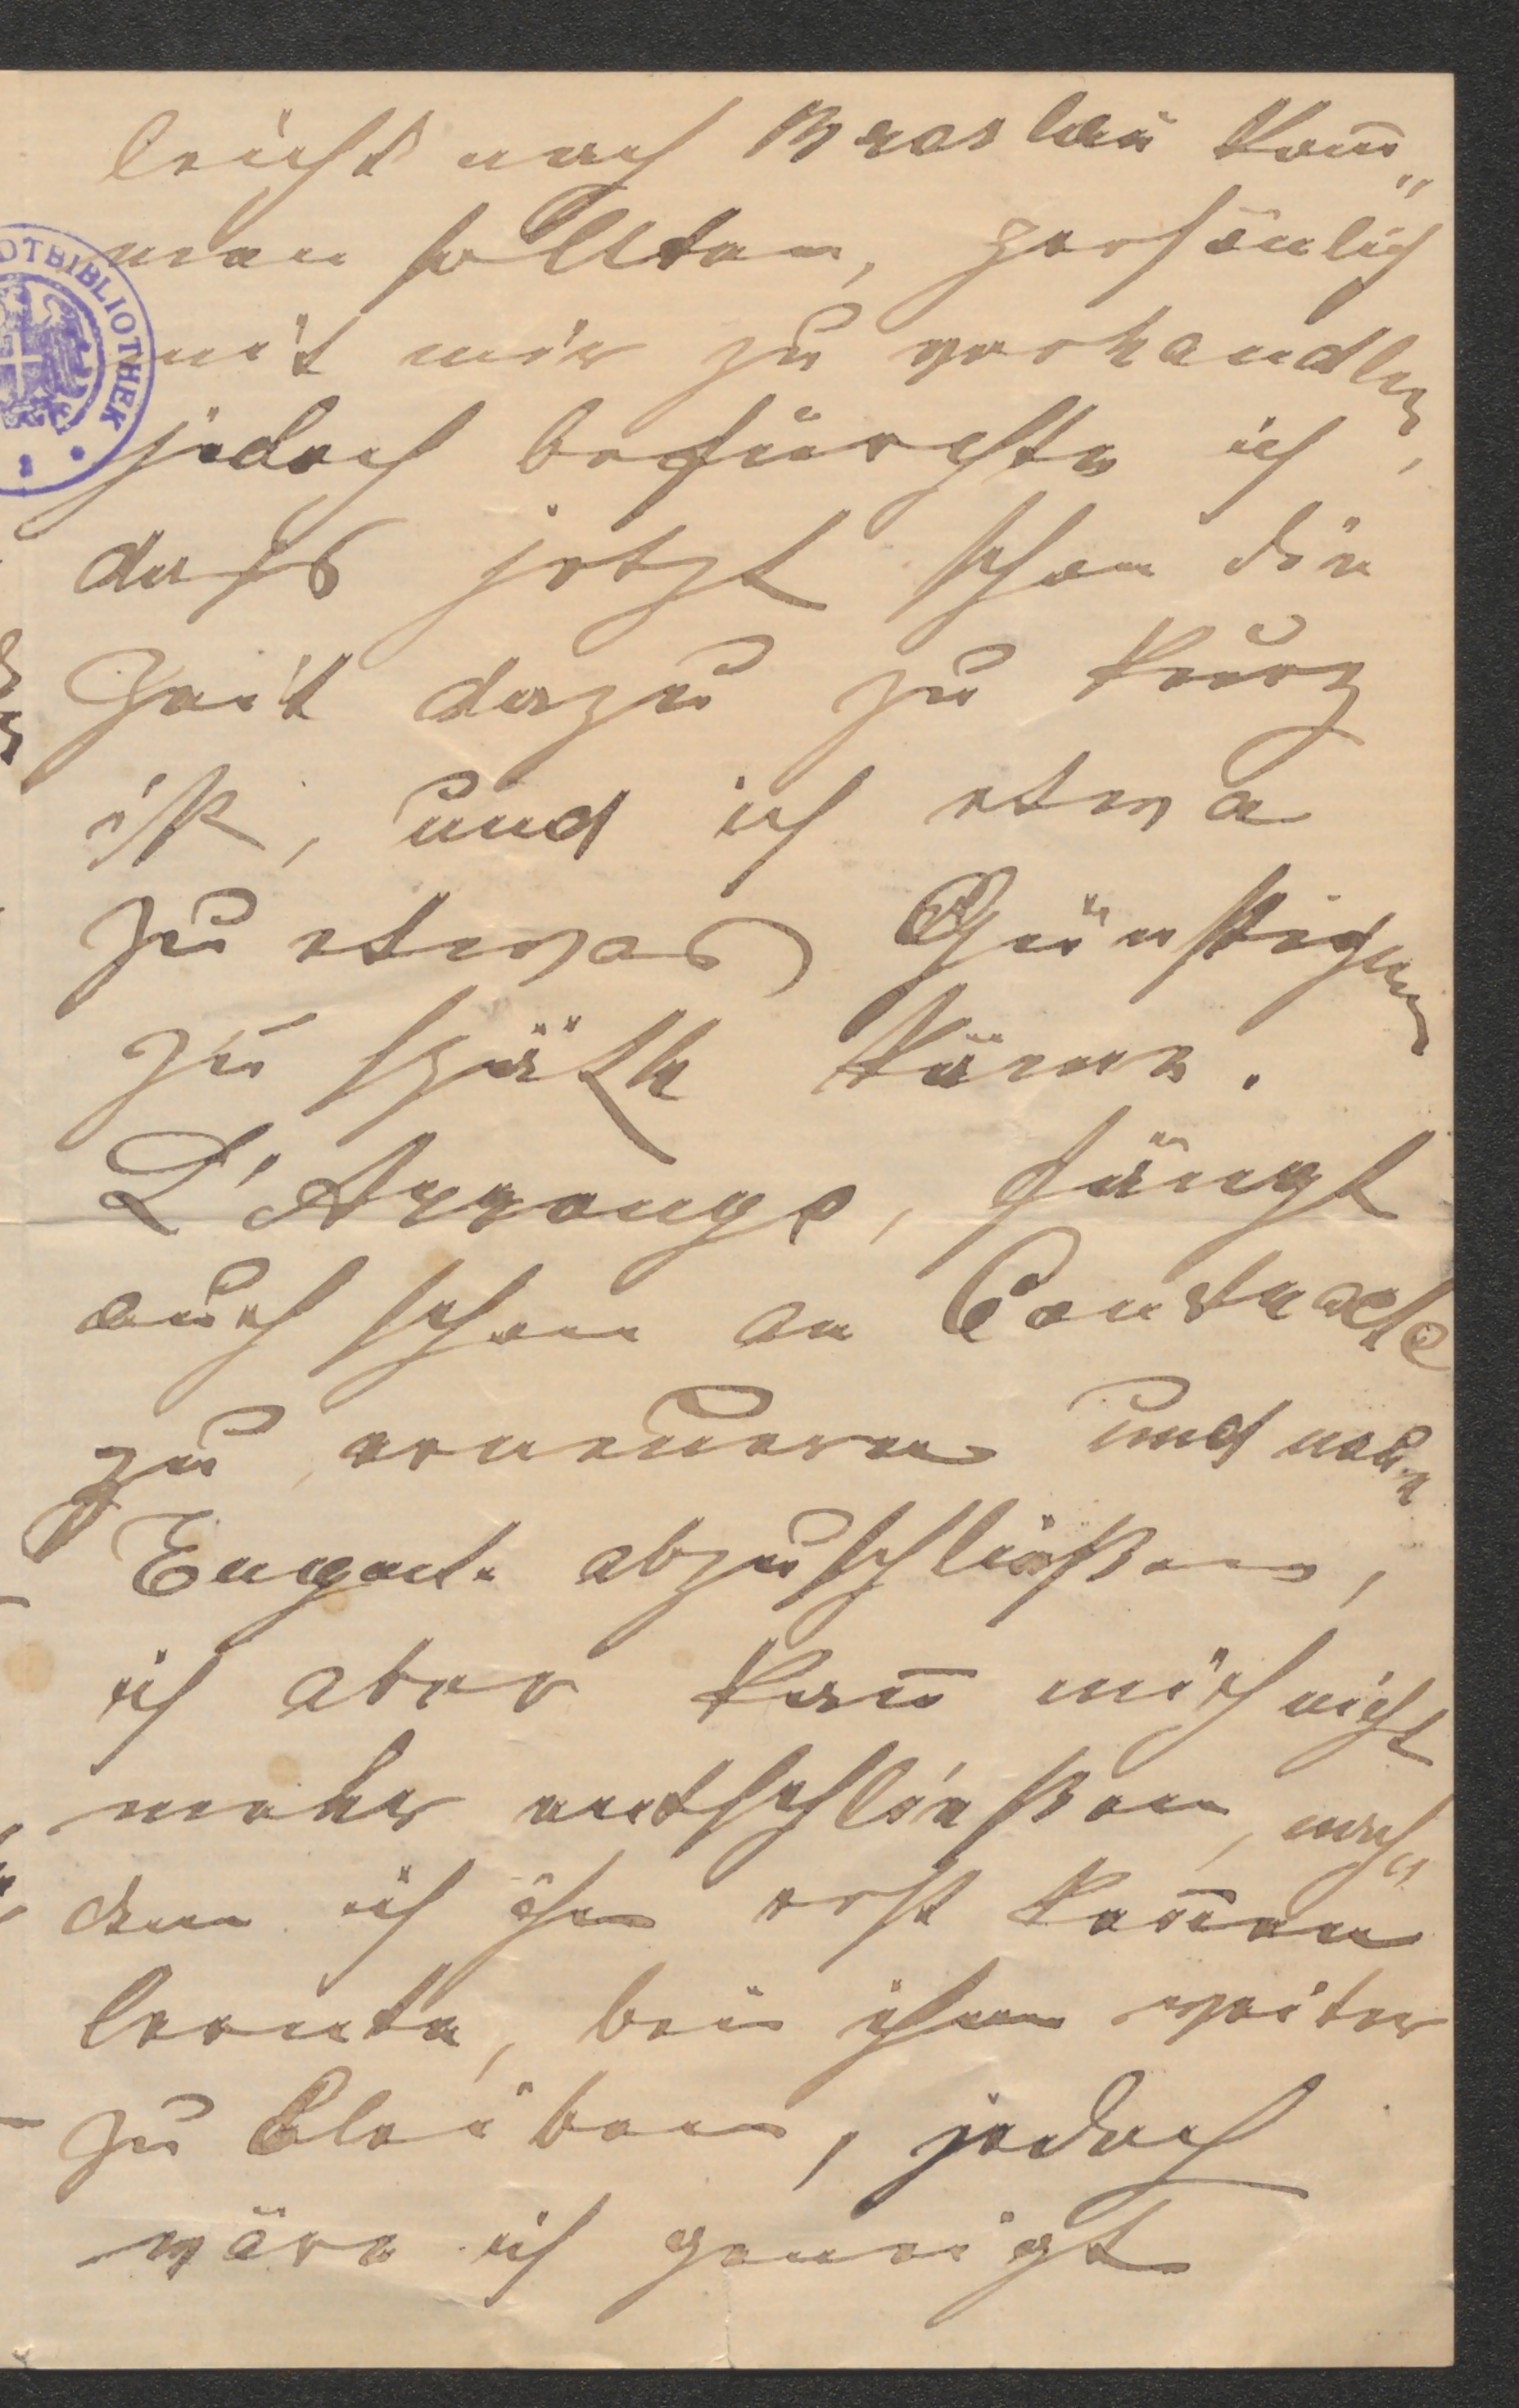 leicht nach Breslau kom̄„
men sollten, persönlich
mit mir zu verhandlen,
jedoch befürchte ich,
dass jetzt schon die
Zeit dazu zu kurz
ist, und ich etwa
zu etwas Günstigem
zu späth käme.
L'Arronge, fängt
auch schon an Contracte
zu erneuern und neue
Engart. abzuschließen,
ich aber kan̄ mich nicht
mehr entschließen, nach„
dem ich ihn erst ken̄en
lernte, bei ihm weiter
zu bleiben, jedoch
wäre ich geneigt
DTBIBLIOTHEK